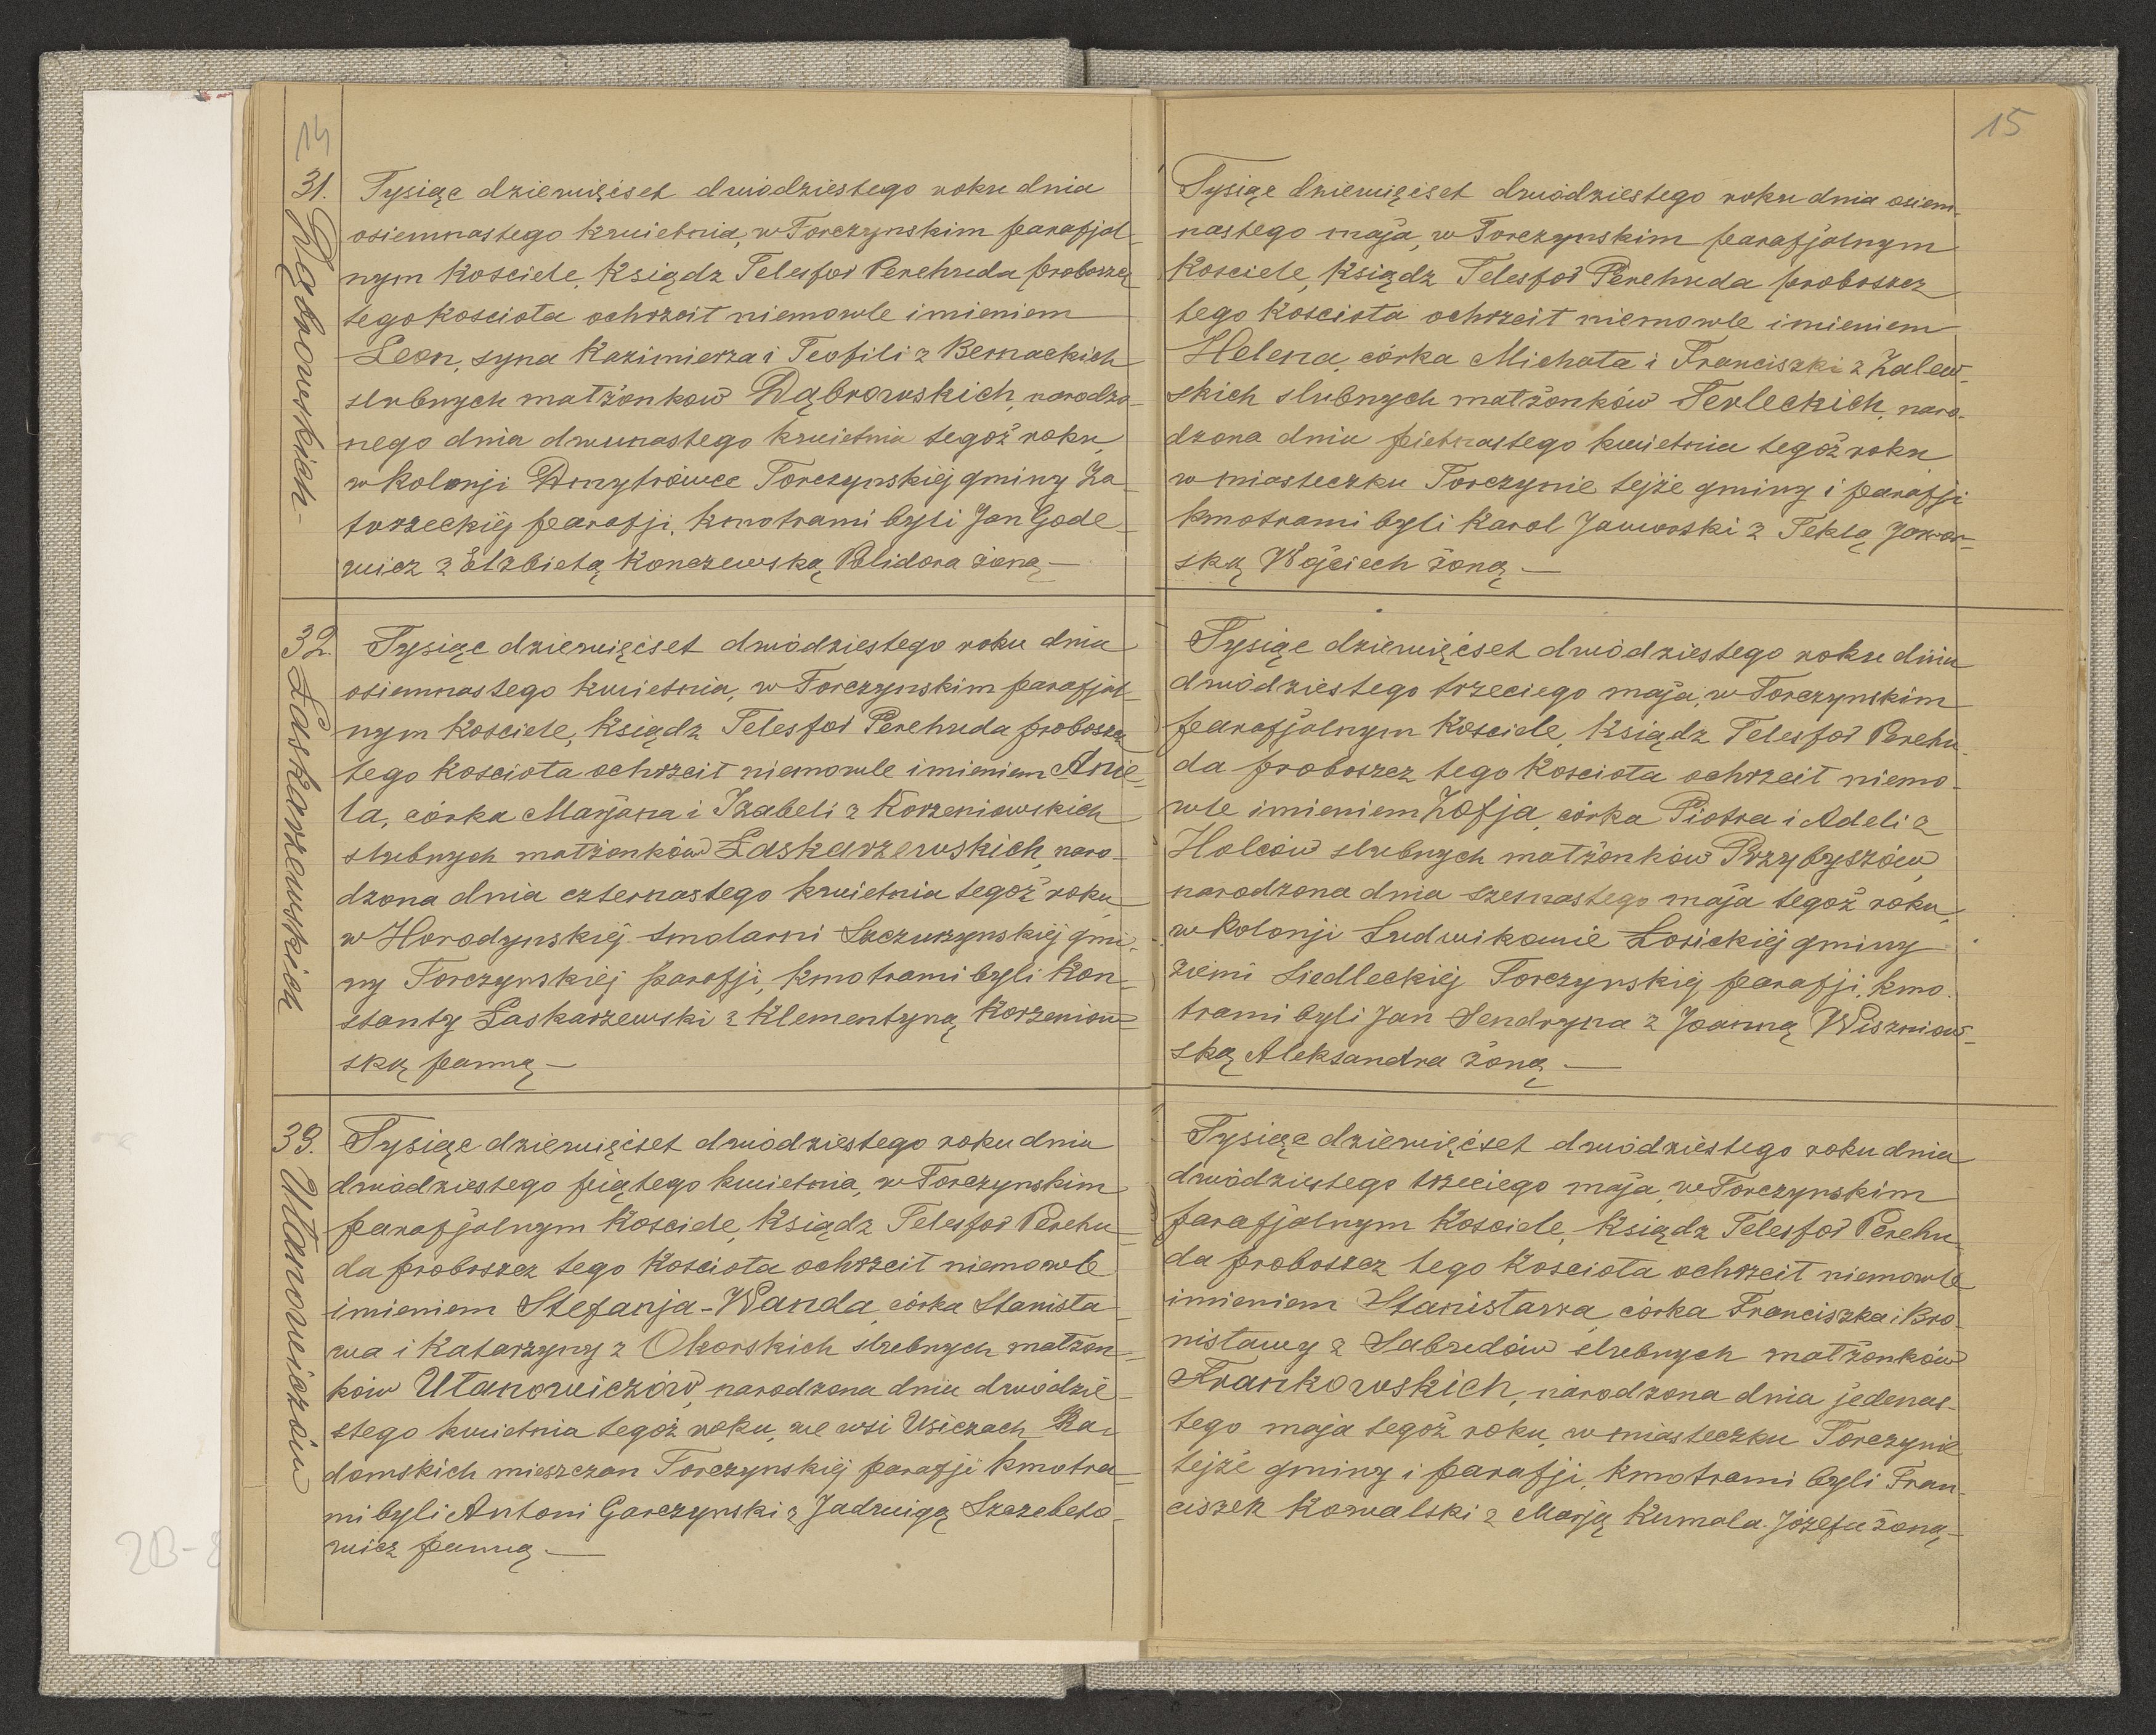 14
31. Dąbrowskich
Tysiąc dziewięćset dwódziestego roku dnia
osiemnastego kwietnia, w Torczynskim parafjal-
nym Kosciele, Ksiądz Telesfor Perehuda proboszcz
tego Kosciola ochrzcit niemowle imieniem
Leon, syna Kazimierza i Teofili z Bernackich
slubnych matżonkow Dąbrowskich, narodzo-
nego dnia dwunastego kwietnia tegoż roku,
w Kolonji Dmytrówce Torczynskiéj gminy Za-
turzeckiéj parafji, kmotrami byli Jan Gode-
wicz z Elzbietą Konczewską Polidora żoną —
32. Łaskarzewskich
Tysiąc dziewięćset dwódziestego roku dnia
osiemnastego kwietnia, w Torczynskim parafjal-
nym Kosciele, Ksiądz Telesfor Perehuda proboszcz
tego Kosciola ochrzcit niemowle imieniem Anie-
la, córka Marjana i Izabeli z Korzeniowskich
slubnych matżonków Łaskarzewskich, naro-
dzona dnia czternastego kwietnia tegoż roku,
w Horodynskiéj smolarni gmi-
ny Torczynskiéj parafji, kmotrami byli Kon-
stanty Łaskarzewski z Klementyną Korzeniow-
ską panną —
33. Utanowiczów
Tysiąc dziewięćset dwódziestego roku dnia
dwódziestego piątego kwietnia, w Torczynskim
parafjalnym Kosciele, Ksiądz Telesfor Perehu-
da proboszcz tego Kosciola ochrzcit niemowle
imieniem Stefanja-Wanda, córka Stanista-
wa i Katarzyny z Okorskich slubnych matżon-
ków Utanowiczów, narodzona dnia dwódzie-
stego kwietnia tegoż roku, we wsi Usiczach Ra-
domskich mieszczan Torczynskiéj parafji kmotra-
mi byli Antoni Garczynski z Jadwigą Szczebeto-
wicz panną —
15
Tysiąc dziewięćset dwódziestego roku dnia osiem-
nastego maja, w Torczynskim parafjalnym
Kosciele, Ksiądz Telesfor Perehuda proboszcz
tego Kosciola ochrzcit niemowle imieniem
Helena, córka Michała i Franciszki z Zalew-
skich slubnych matżonków Terleckich, naro-
dzona dnia pietnastego kwietnia tegoż roku
w miasteczku Torczynie tejże gminy i parafji
kmotrami byli Karol Jaworski z Teklą Jawor-
ską Wojciech żoną —
Tysiąc dziewięćset dwódziestego roku dnia
dwódziestego trzeciego maja, w Torczynskim
parafjalnym Kosciele, Ksiądz Telesfor Perehu-
da proboszcz tego Kosciola ochrzcit niemo-
wle imieniem Zofja, córka Piotra i Adeli z
Holców slubnych matżonków Przybyszów,
narodzona dnia szesnastego maja tegoż roku,
w Kolonji Ludwikowie Łosickiéj gminy
ziemi Siedleckiéj Torczynskiéj parafji, kmo-
trami byli Jan Sendryna z Joanną Wiszniow-
ską Aleksandra żoną —
Tysiąc dziewięćset dwódziestego roku dnia
dwódziestego trzeciego maja, w Torczynskim
parafjalnym Kosciele, Ksiądz Telesfor Perehu-
da proboszcz tego Kosciola ochrzcit niemowle
imieniem Stanistawa, córka Franciszka i Bro-
nistawy z Sabudów slubnych matżonków
Frankowskich, narodzona dnia jedenas-
tego maja tegoż roku, w miasteczku Torczynie
tejże gminy i parafji, kmotrami byli Fran-
ciszek Kowalski z Marją Kumala Józefa żoną —
2B-8